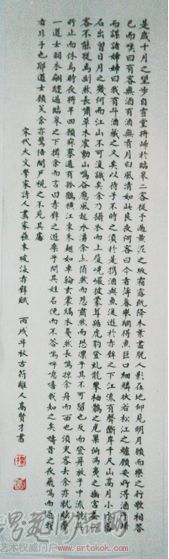 是歲十月之望步自雪堂將歸於臨皋二客從予過黃泥之坂霜露既降木葉盡脫人影在地仰見明月顧而樂之行歌相答
已而嘆曰有客無酒有酒無肴月白風清如此良夜何客曰今者薄暮舉網得魚巨口細鱗狀若松江之鱸顧安所得酒乎歸
而謀諸婦婦曰我有斗酒藏之久矣以待子不時之須於是攜酒與魚復遊於赤壁之下江流有聲斷岸千尺山高月小水落
石出曾日月之幾何而江山不可復識矣余乃攝衣而上履巉巖披蒙茸踞虎豹登虬龍攀棲鶻之危巢俯馮夷之幽宮蓋二
客不能從焉劃然長嘯草木震動山鳴谷應風起水涌余亦悄然而悲肅然而恐凜乎其不可留也反而登舟放乎中流聽其所
止而休焉時夜將半四顧寂寥適有孤鶴橫江東來翅如車輪玄裳縞衣戛然長鳴掠余舟而西也須臾客去余亦就睡夢
一道士羽衣翩躚過臨皋之下揖余而言曰赤壁之遊樂乎問其姓名俛而不答嗚呼噫嘻我知之矣疇昔之夜飛鳴而過我
者非子也耶道士顧笑余亦驚悟開戶視之不見其處
宋代大文學家詩人書畫家蘇東坡後赤壁賦 丙戌年秋古荷雄人高賢才書
艺术权威门户 - www.artokok.com